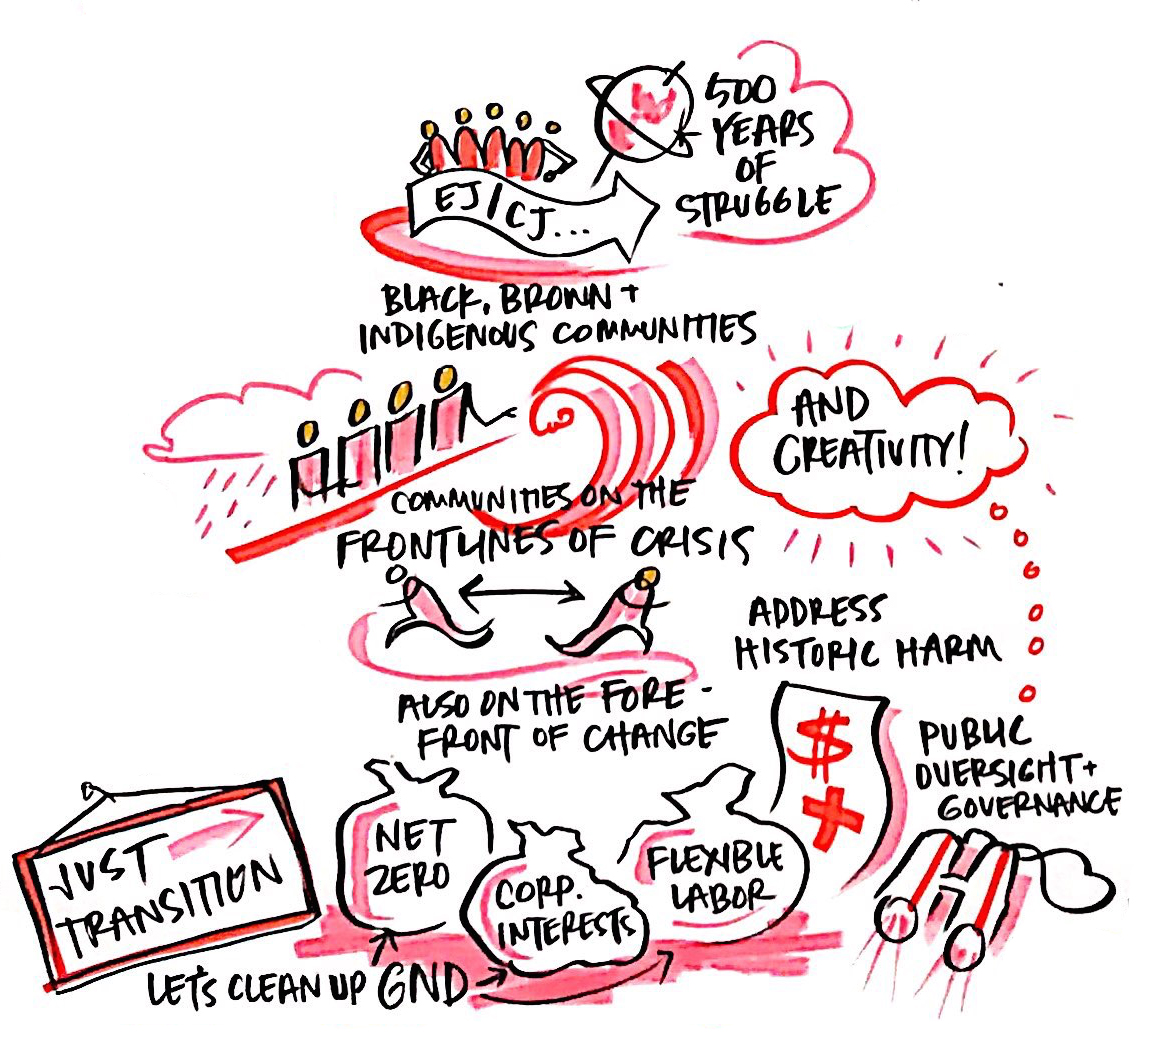 500
YEARS
OF
STRUGGLE
EJ/CJ...
BLACK, BROWN +
INDIGENOUS COMMUNITIES
AND
CREATIVITY!
COMMUNITIES ON THE
FRONTLINES OF CRISIS
ALSO ON THE FORE-
FRONT OF CHANGE
ADDRESS
HISTORIC HARM
$
+
PUBLIC
OVERSIGHT +
GOVERNANCE
JUST
TRANSITION
NET
ZERO
CORP.
INTERESTS
FLEXIBLE
LABOR
LET'S CLEAN UP GND